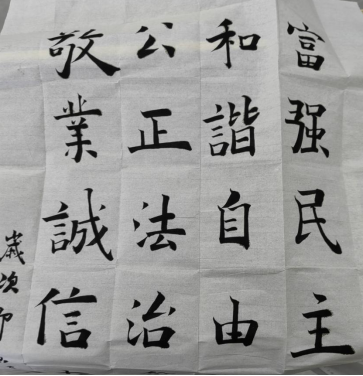 富强民主
和諧自由
公正法治
敬業誠信
歲次卯